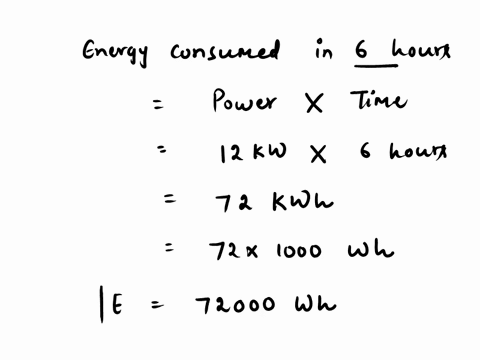 Energy consumed in 6 hours
= Power X Time
= 12 KW X 6 hours
= 72 KWh
= 72 x 1000 Wh
E = 72000 Wh